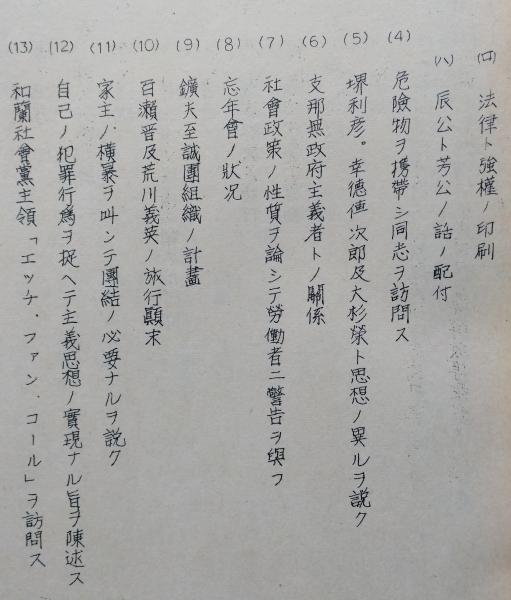 (ロ) 法律ト強權ノ印刷
(ハ) 辰公ト芳公ノ話ノ配付
(4) 危險物ヲ携帶シ同志ヲ訪問ス
(5) 堺利彦。幸德傳次郎及大杉榮ト思想ノ異ルヲ説ク
(6) 支那無政府主義者トノ關係
(7) 社會政策ノ性質ヲ論シテ勞働者ニ警告ヲ與フ
(8) 忘年會ノ狀況
(9) 鑛夫至誠團組織ノ計畫
(10) 百瀬晋及荒川義英ノ旅行顚末
(11) 家主ノ橫暴ヲ叫ンテ團結ノ必要ナルヲ説ク
(12) 自己ノ犯罪行爲ヲ捉ヘテ主義思想ノ實現ナル旨ヲ陳述ス
(13) 和蘭社會黨主領「エッチ．ファン．コール」ヲ訪問ス